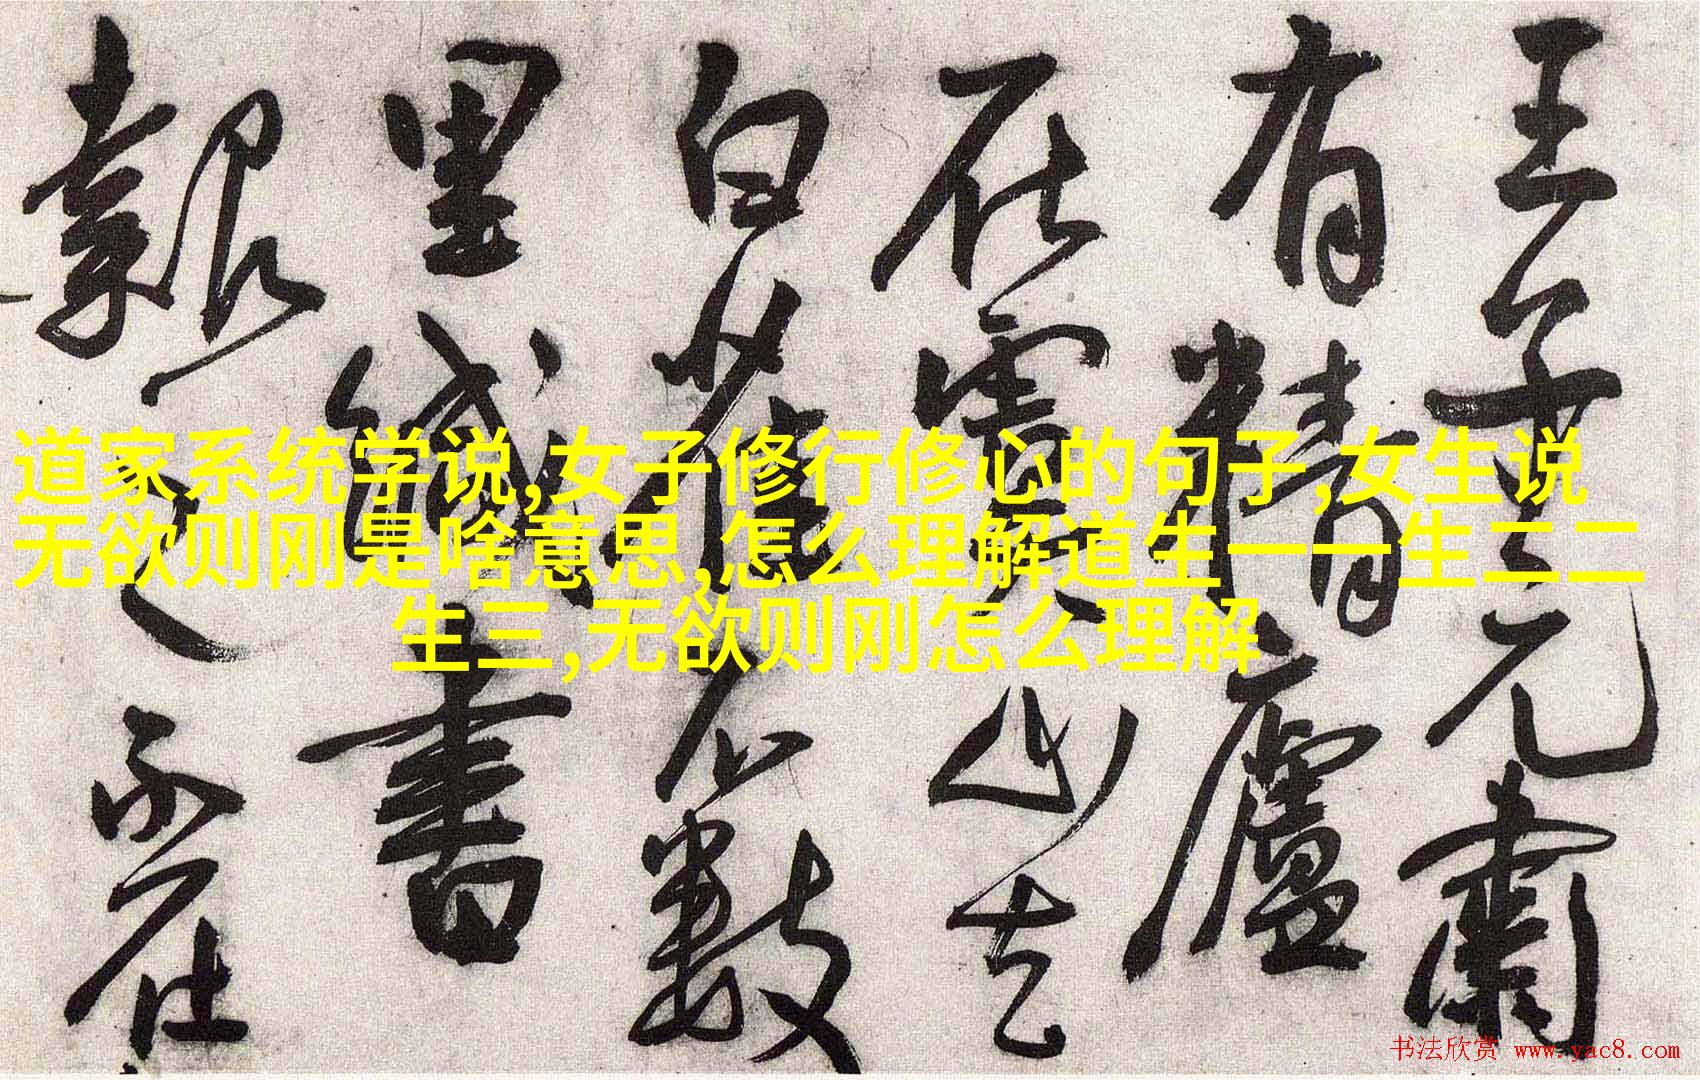 道家系统学说,女子修行修心的句子,女生说
无欲则刚是啥意思,怎么理解道生一一生二二
生三,无欲则刚怎么理解
王子元肅
有精廬
在山去
白雀不數
里緘書
報之不在
书法欣赏 www.yac8.com